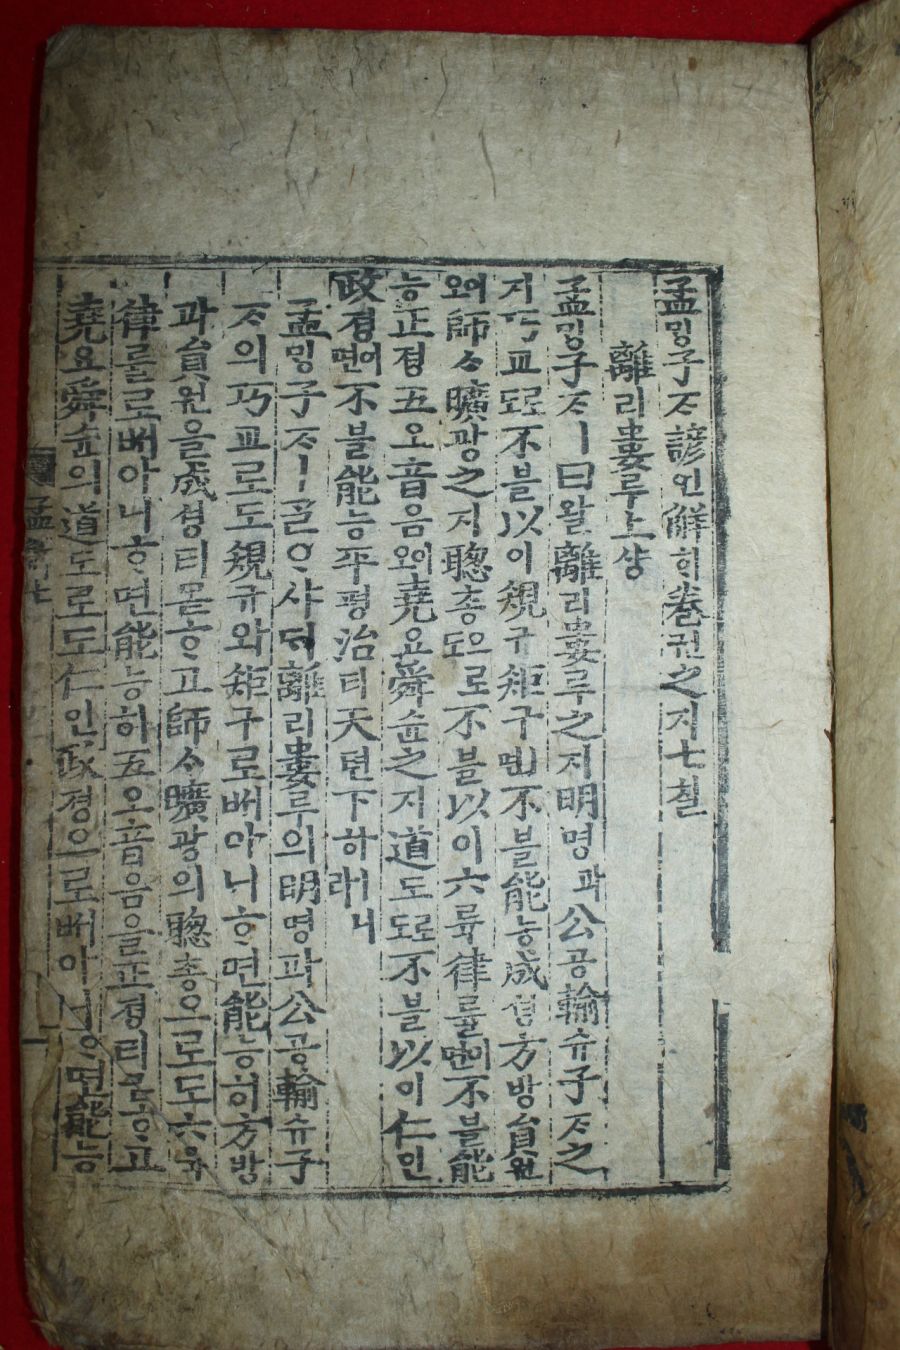 孟ᄆᆡᇰ子ᄌᆞ諺언解ᄒᆡ卷권之지七칠
離리婁루上샹
孟ᄆᆡᇰ子ᄌᆞㅣ曰왈離리婁루之지明명과公공輸슈子ᄌᆞ之
지巧교로도不블以이規규矩구ㅣ면不블能능成셩方방員원
이오師ᄉᆞ曠광之지聰총으로도不블以이六륙律률이면不블能
능正졍五오音음이오堯요舜슌之지道도로도不블以이仁인
政졍이면不블能능平평治티天텬下하ㅣ니라
孟ᄆᆡᇰ子ᄌᆞㅣᄀᆞᆯᄋᆞ샤ᄃᆡ離리婁루의明명과公공輸슈子
ᄌᆞ의巧교로도規규와矩구로ᄡᅥ아니ᄒᆞ면能능히方방
과員원을成셩티몯ᄒᆞ고師ᄉᆞ曠광의聰총으로도六륙
律률로ᄡᅥ아니ᄒᆞ면能능히五오音음을正졍티몯ᄒᆞ고
堯요舜슌의道도로도仁인政졍으로ᄡᅥ아니ᄒᆞ면能능
孟